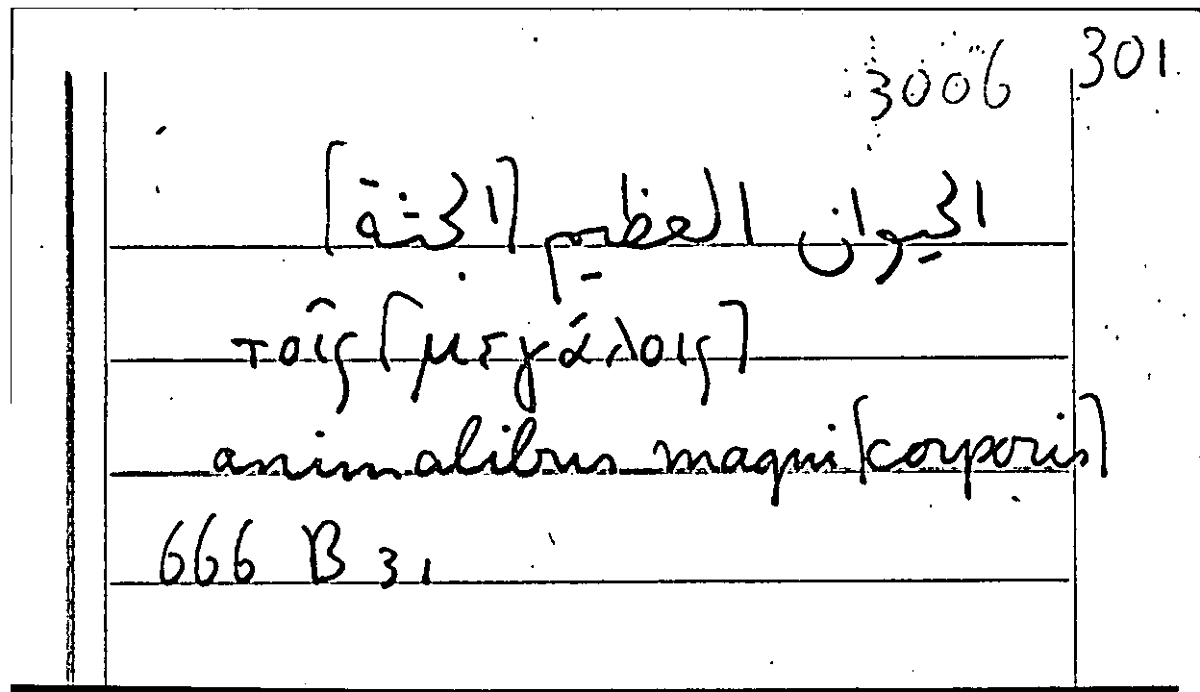 3006 301
الحيوان العظيم [الجثة]
τοῖς [μεγάλοις]
animalibus magni [corporis]
666 B 31